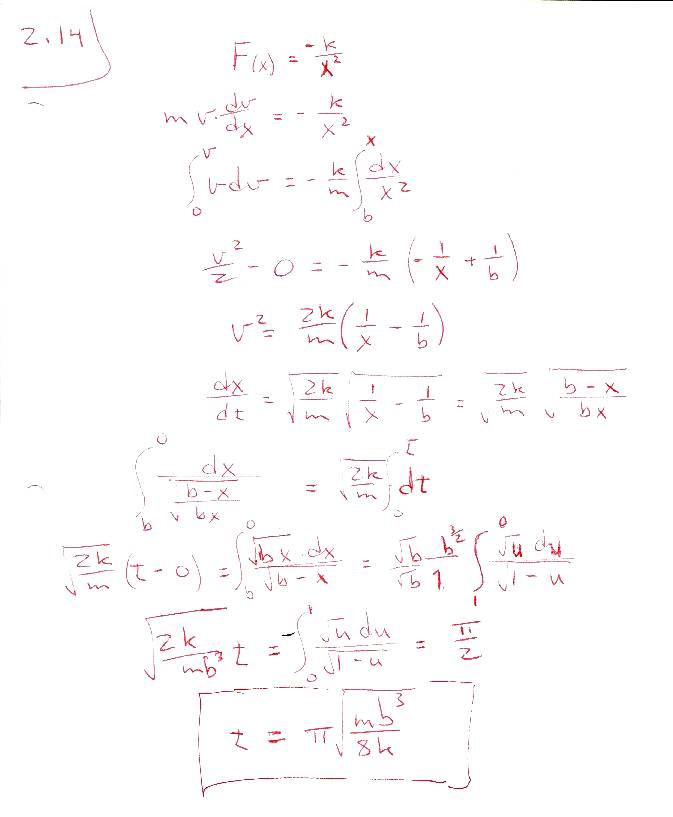 2.14
F(x) = -k/x²
m v·dv/dx = - k/x²
∫₀^v v dv = - k/m ∫_b^x dx/x²
v²/2 - 0 = - k/m (- 1/x + 1/b)
v² = 2k/m (1/x - 1/b)
dx/dt = √(2k/m) √(1/x - 1/b) = √(2k/m) √((b-x)/bx)
∫_b^0 dx/√((b-x)/bx) = √(2k/m) ∫₀^t dt
√(2k/m) (t-0) = ∫_b^0 √(bx)·dx/√(b-x) = √b/√b b^(3/2)/1 ∫₁^0 √u du/√(1-u)
√(2k/mb³) t = -∫₀^1 √u du/√(1-u) = π/2
t = π√(mb³/8k)